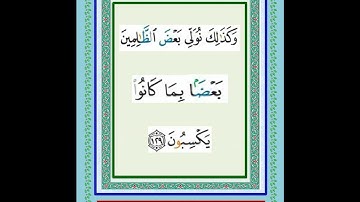 وَكَذَٰلِكَ نُوَلِّي بَعْضَ ٱلظَّـٰلِمِينَ
بَعْضًۢا بِمَا كَانُوا۟
يَكْسِبُونَ ١٢٩